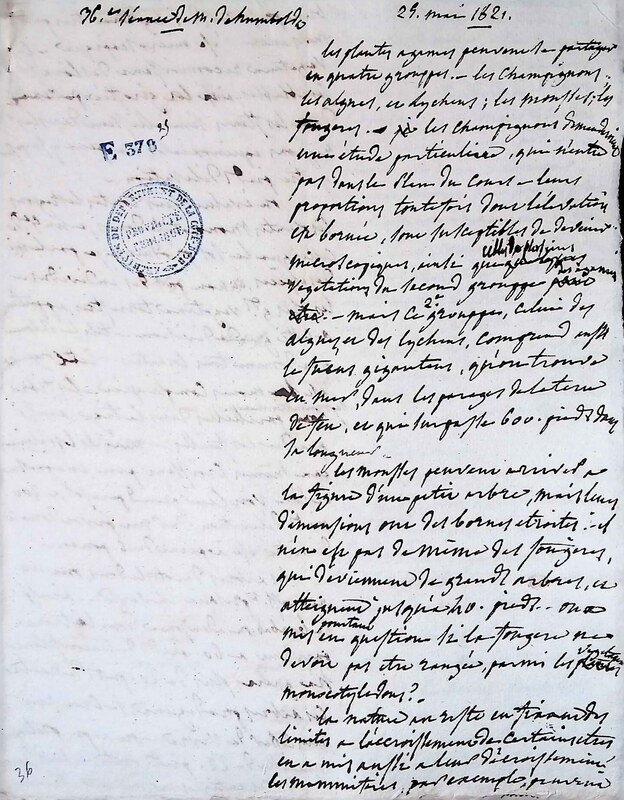 36.e séance de M. de humboldt
29. mai 1821.
les plantes agames peuvent se partager
en quatre grouppes. – les champignons;
les algues, et lychens; les mousses; les
fougeres. – les champignons demandent
une étude particuliere, qui n'entre
pas dans le plan du Cours – leurs
proportions toutefois dont l'élévation
est bornée, sont susceptibles de devenir
microscopiques, ainsi que celles de plusieurs
vegetations du second grouppe
– mais ce 2e grouppe, celui des
algues et des lychens, comprend aussi
le fucus giganteus, qu'on trouve
en mer, dans les parages de la terre
de feu, et qui surpasse 600. pieds dans
sa longueur.
les mousses peuvent arriver a
la figure d'un petit arbre, mais leurs
dimensions ont des bornes etroites: il
n'en est pas de même des fougeres,
qui deviennent de grands arbres, et
atteignent jusqu'a 40. pieds. on a
pourtant
mis en question si la fougere ne
devoit pas etre rangée, parmi les
monocotyledons?
la nature au reste en fixant des
limites a l'accroissement de certains etres
en a mis aussi a leur décroissement
les mammiferes, par exemple, peuvent
E 378
25
PROPRIÉTÉ
PUBLIQUE
36